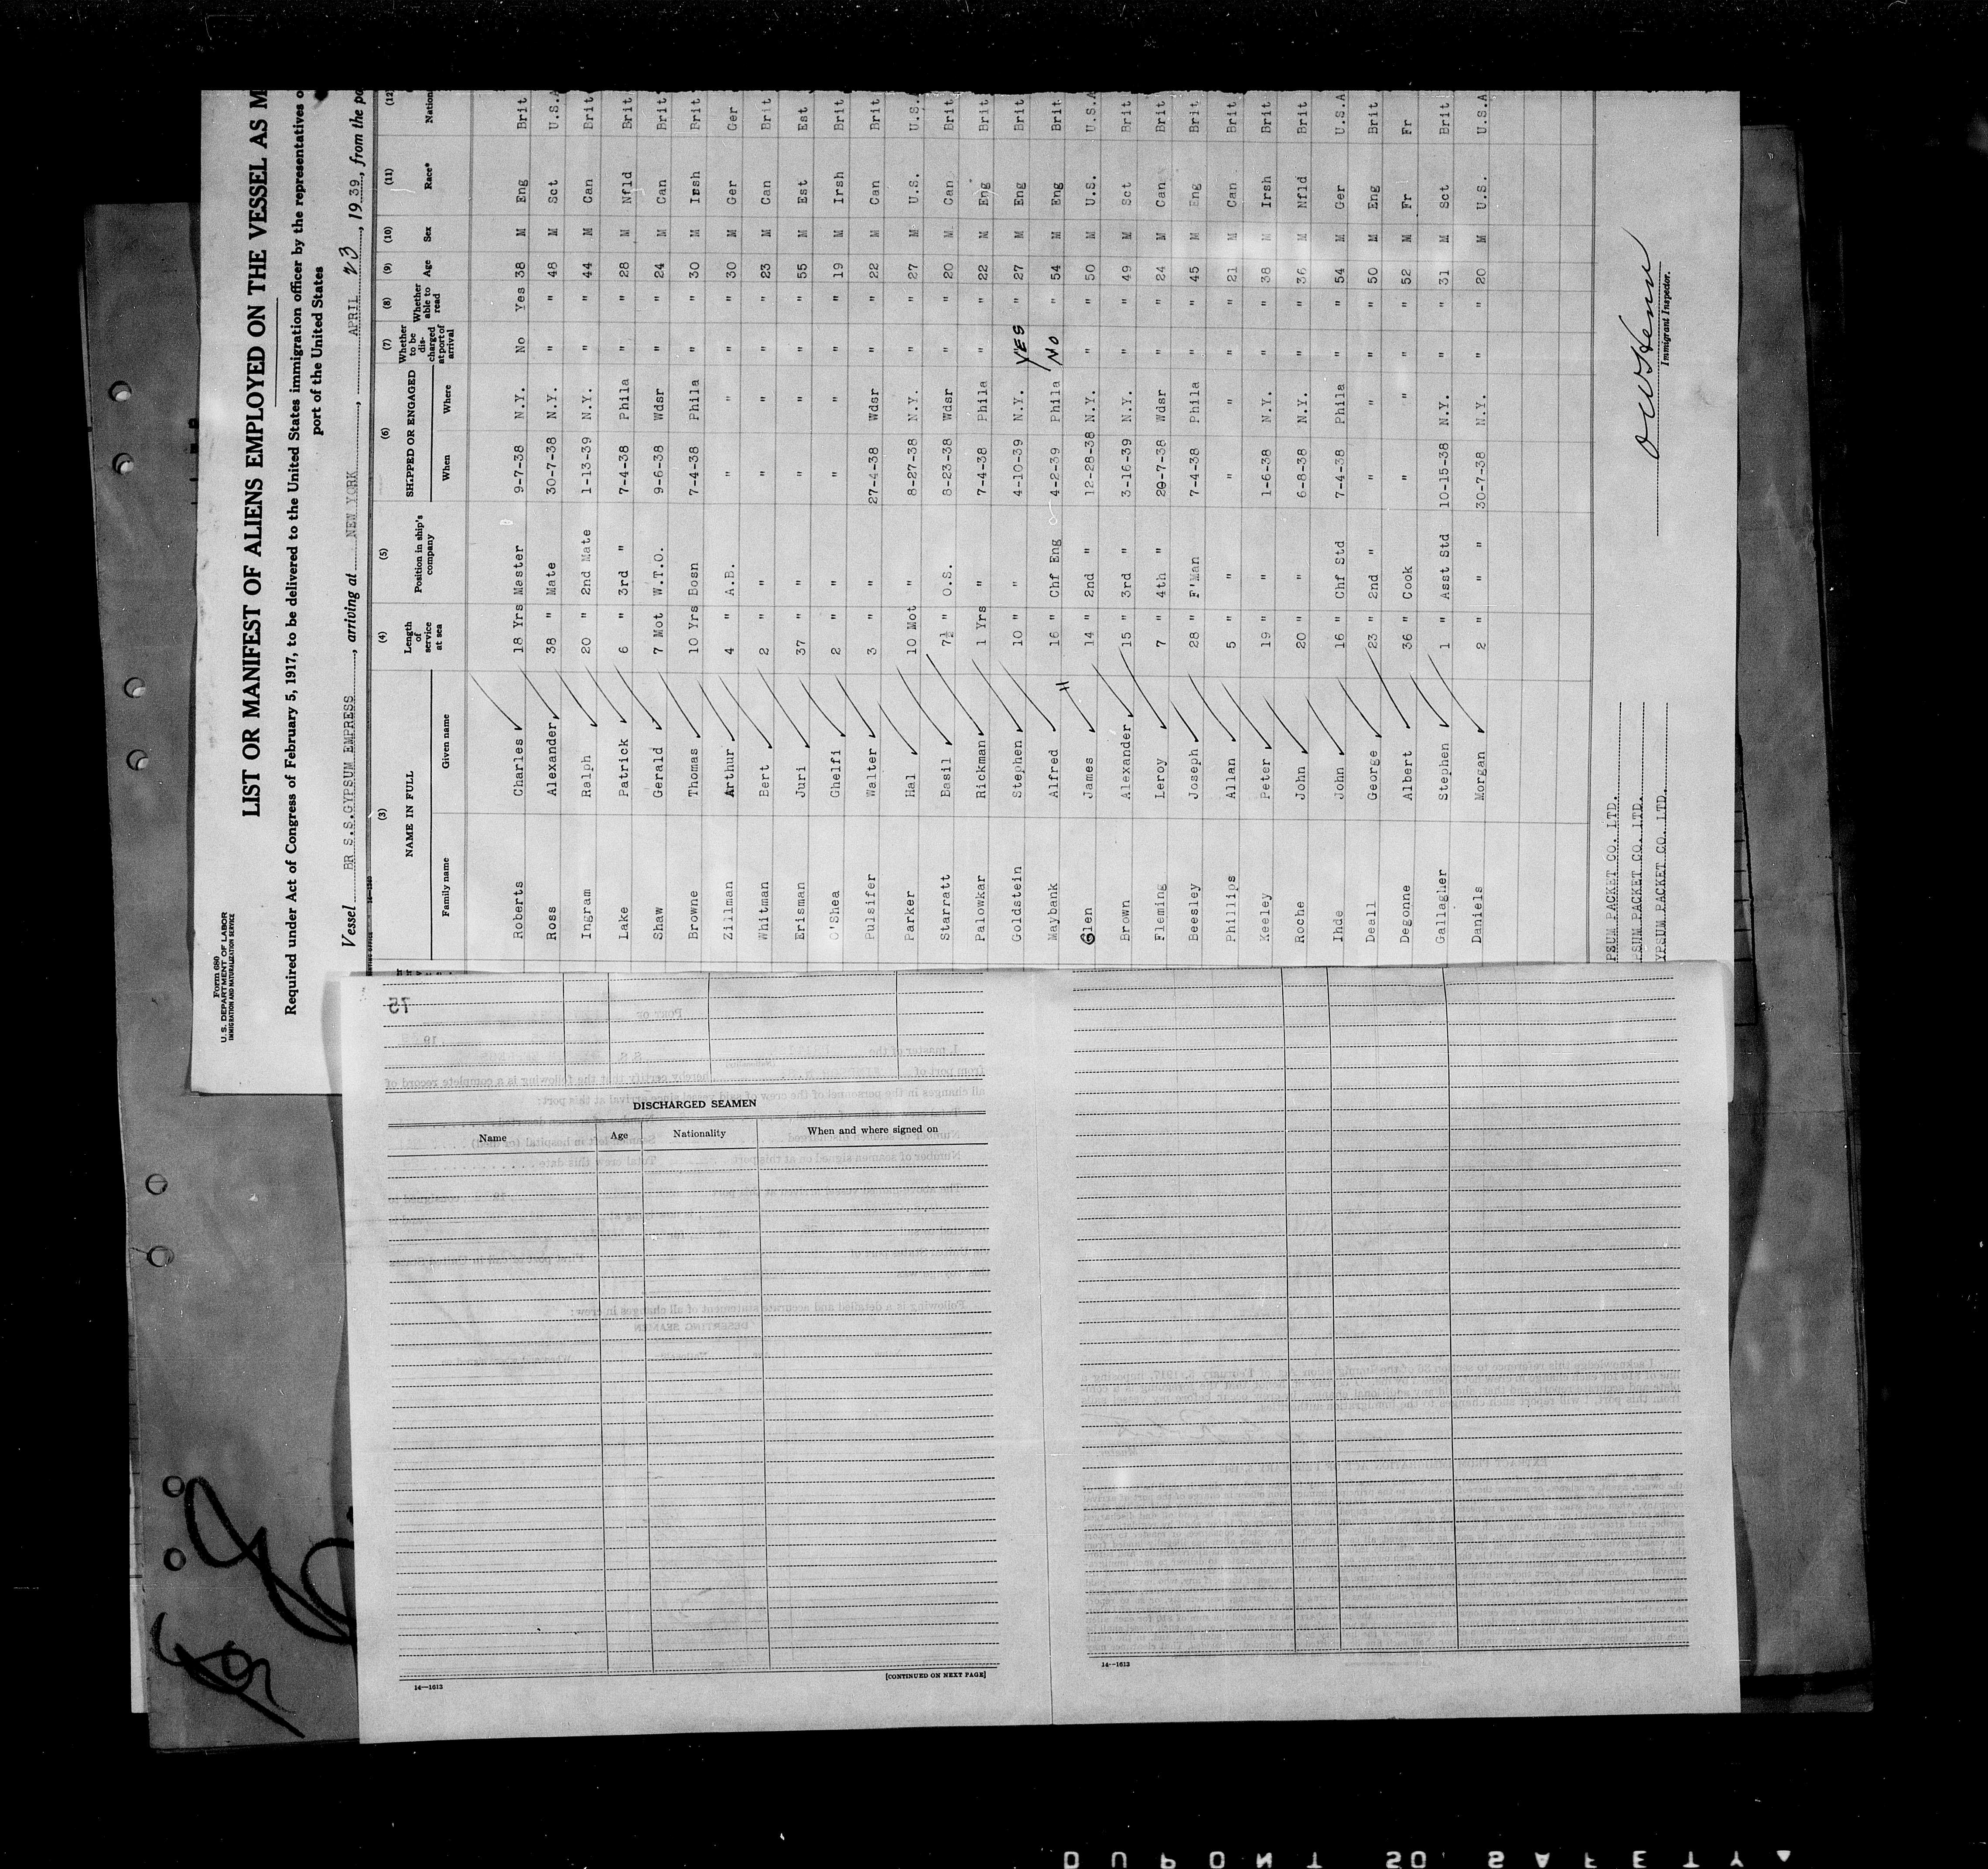 Form 680
U. S. DEPARTMENT OF LABOR
IMMIGRATION AND NATURALIZATION SERVICE
LIST OR MANIFEST OF ALIENS EMPLOYED ON THE VESSEL AS M
Required under Act of Congress of February 5, 1917, to be delivered to the United States immigration officer by the representatives o
port of the United States
Vessel BR S.S.GYPSUM EMPRESS, arriving at NEW YORK, APRIL 23, 1939, from the po
(3) (4) (5) (6) (7) (8) (9) (10) (11) (12)
NAME IN FULL Length of service at sea Position in ship's company SHIPPED OR ENGAGED Whether to be discharged at port of arrival Whether able to read Age Sex Race* Nation
Family name Given name When Where
Roberts Charles 18 Yrs Master 9-7-38 N.Y. No Yes 38 M Eng Brit
Ross Alexander 38 " Mate 30-7-38 N.Y. " " 48 M Sct U.S.A
Ingram Ralph 20 " 2nd Mate 1-13-39 N.Y. " " 44 M Can Brit
Lake Patrick 6 " 3rd " 7-4-38 Phila " " 28 M Nfld Brit
Shaw Gerald 7 Mot W.T.O. 9-6-38 Wdsr " " 24 M Can Brit
Browne Thomas 10 Yrs Bosn 7-4-38 Phila " " 30 M Irsh Brit
Zillman Arthur 4 " A.B. " " " " 30 M Ger Ger
Whitman Bert 2 " " " " " " 23 M Can Brit
Erisman Juri 37 " " " " " " 55 M Est Est
O'Shea Ghelfi 2 " " " " " " 19 M Irsh Brit
Pulsifer Walter 3 " " 27-4-38 Wdsr " " 22 M Can Brit
Parker Hal 10 Mot " 8-27-38 N.Y. " " 27 M U.S. U.S.
Starratt Basil 7½ " O.S. 8-23-38 Wdsr " " 20 M Can Brit
Palowkar Rickman 1 Yrs " 7-4-38 Phila " " 22 M Eng Brit
Goldstein Stephen 10 " " 4-10-39 N.Y. YES " 27 M Eng Brit
Maybank Alfred 16 " Chf Eng 4-2-39 Phila NO " 54 M Eng Brit
Glen James 14 " 2nd " 12-28-38 N.Y. " " 50 M U.S. U.S.A
Brown Alexander 15 " 3rd " 3-16-39 N.Y. " " 49 M Sct Brit
Fleming Leroy 7 " 4th " 20-7-38 Wdsr " " 24 M Can Brit
Beesley Joseph 28 " F'Man 7-4-38 Phila " " 45 M Eng Brit
Phillips Allan 5 " " " " " " 21 M Can Brit
Keeley Peter 19 " " 1-6-38 N.Y. " " 38 M Irsh Brit
Roche John 20 " " 6-8-38 N.Y. " " 36 M Nfld Brit
Ihde John 16 " Chf Std 7-4-38 Phila " " 54 M Ger U.S.A
Deall George 23 " 2nd " " " " " 50 M Eng Brit
Degonne Albert 36 " Cook " " " " 52 M Fr Fr
Gallagher Stephen 1 " Asst Std 10-15-38 N.Y. " " 31 M Sct Brit
Daniels Morgan 2 " " " 30-7-38 N.Y. " " 20 M U.S. U.S.A
PSUM PACKET CO. LTD.
PSUM PACKET CO. LTD.
YPSUM PACKET CO. LTD.
Immigrant Inspector.
75
DISCHARGED SEAMEN
Name Age Nationality When and where signed on
[CONTINUED ON NEXT PAGE]
14—1613
14—1613
DUPONT SAFETY